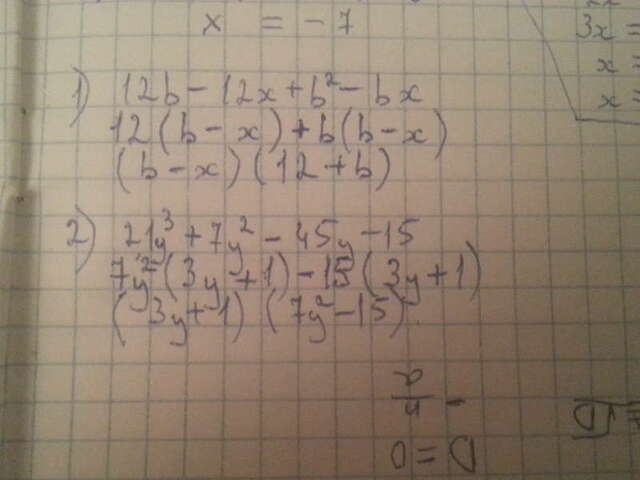 x = -7
3x =
x =
x =
1) 12b - 12x + b² - bx
12(b - x) + b(b - x)
(b - x)(12 + b)
2) 21y³ + 7y² - 45y - 15
7y²(3y + 1) - 15(3y + 1)
(3y + 1)(7y² - 15)
D = 0